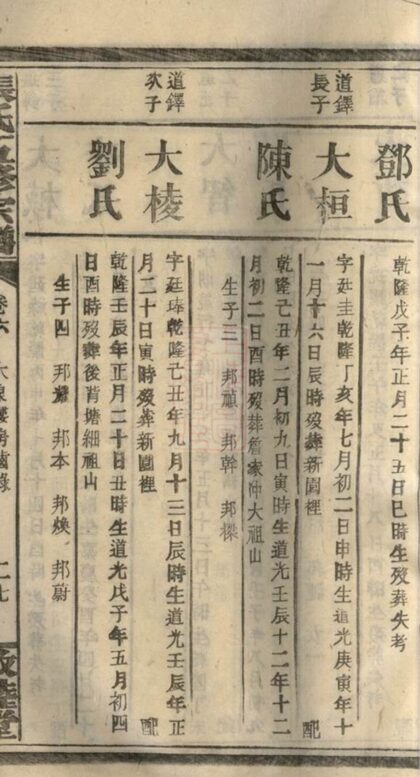 鄧氏
乾隆戊子年正月二十五日巳時生歿葬失考
道鐸長子
大桓
字廷圭乾隆丁亥年七月初二日申時生道光庚寅年十
一月十六日辰時歿葬新園裡
配
陳氏
乾隆己丑年二月初九日寅時生道光壬辰十二年十二
月初二日酉時歿葬詹家仲大祖山
生子三 邦憲 邦幹 邦樑
道鐸次子
大棱
字廷琫乾隆己丑年九月十三日辰時生道光壬辰年正
月二十日寅時歿葬新園裡
配
劉氏
乾隆壬辰年正月二十日丑時生道光戊子年五月初四
日酉時歿葬後背塘細祖山
生子四 邦耀 邦本 邦煥 邦蔚
張氏五修宗譜
卷六
二九
敦睦堂